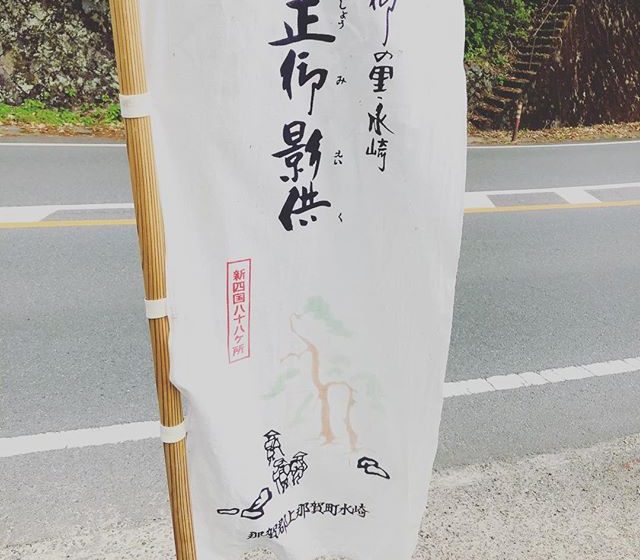 御の里・水崎
正御影供
しょうみえいく
新四国八十八ヶ所
那賀郡上那賀町水崎